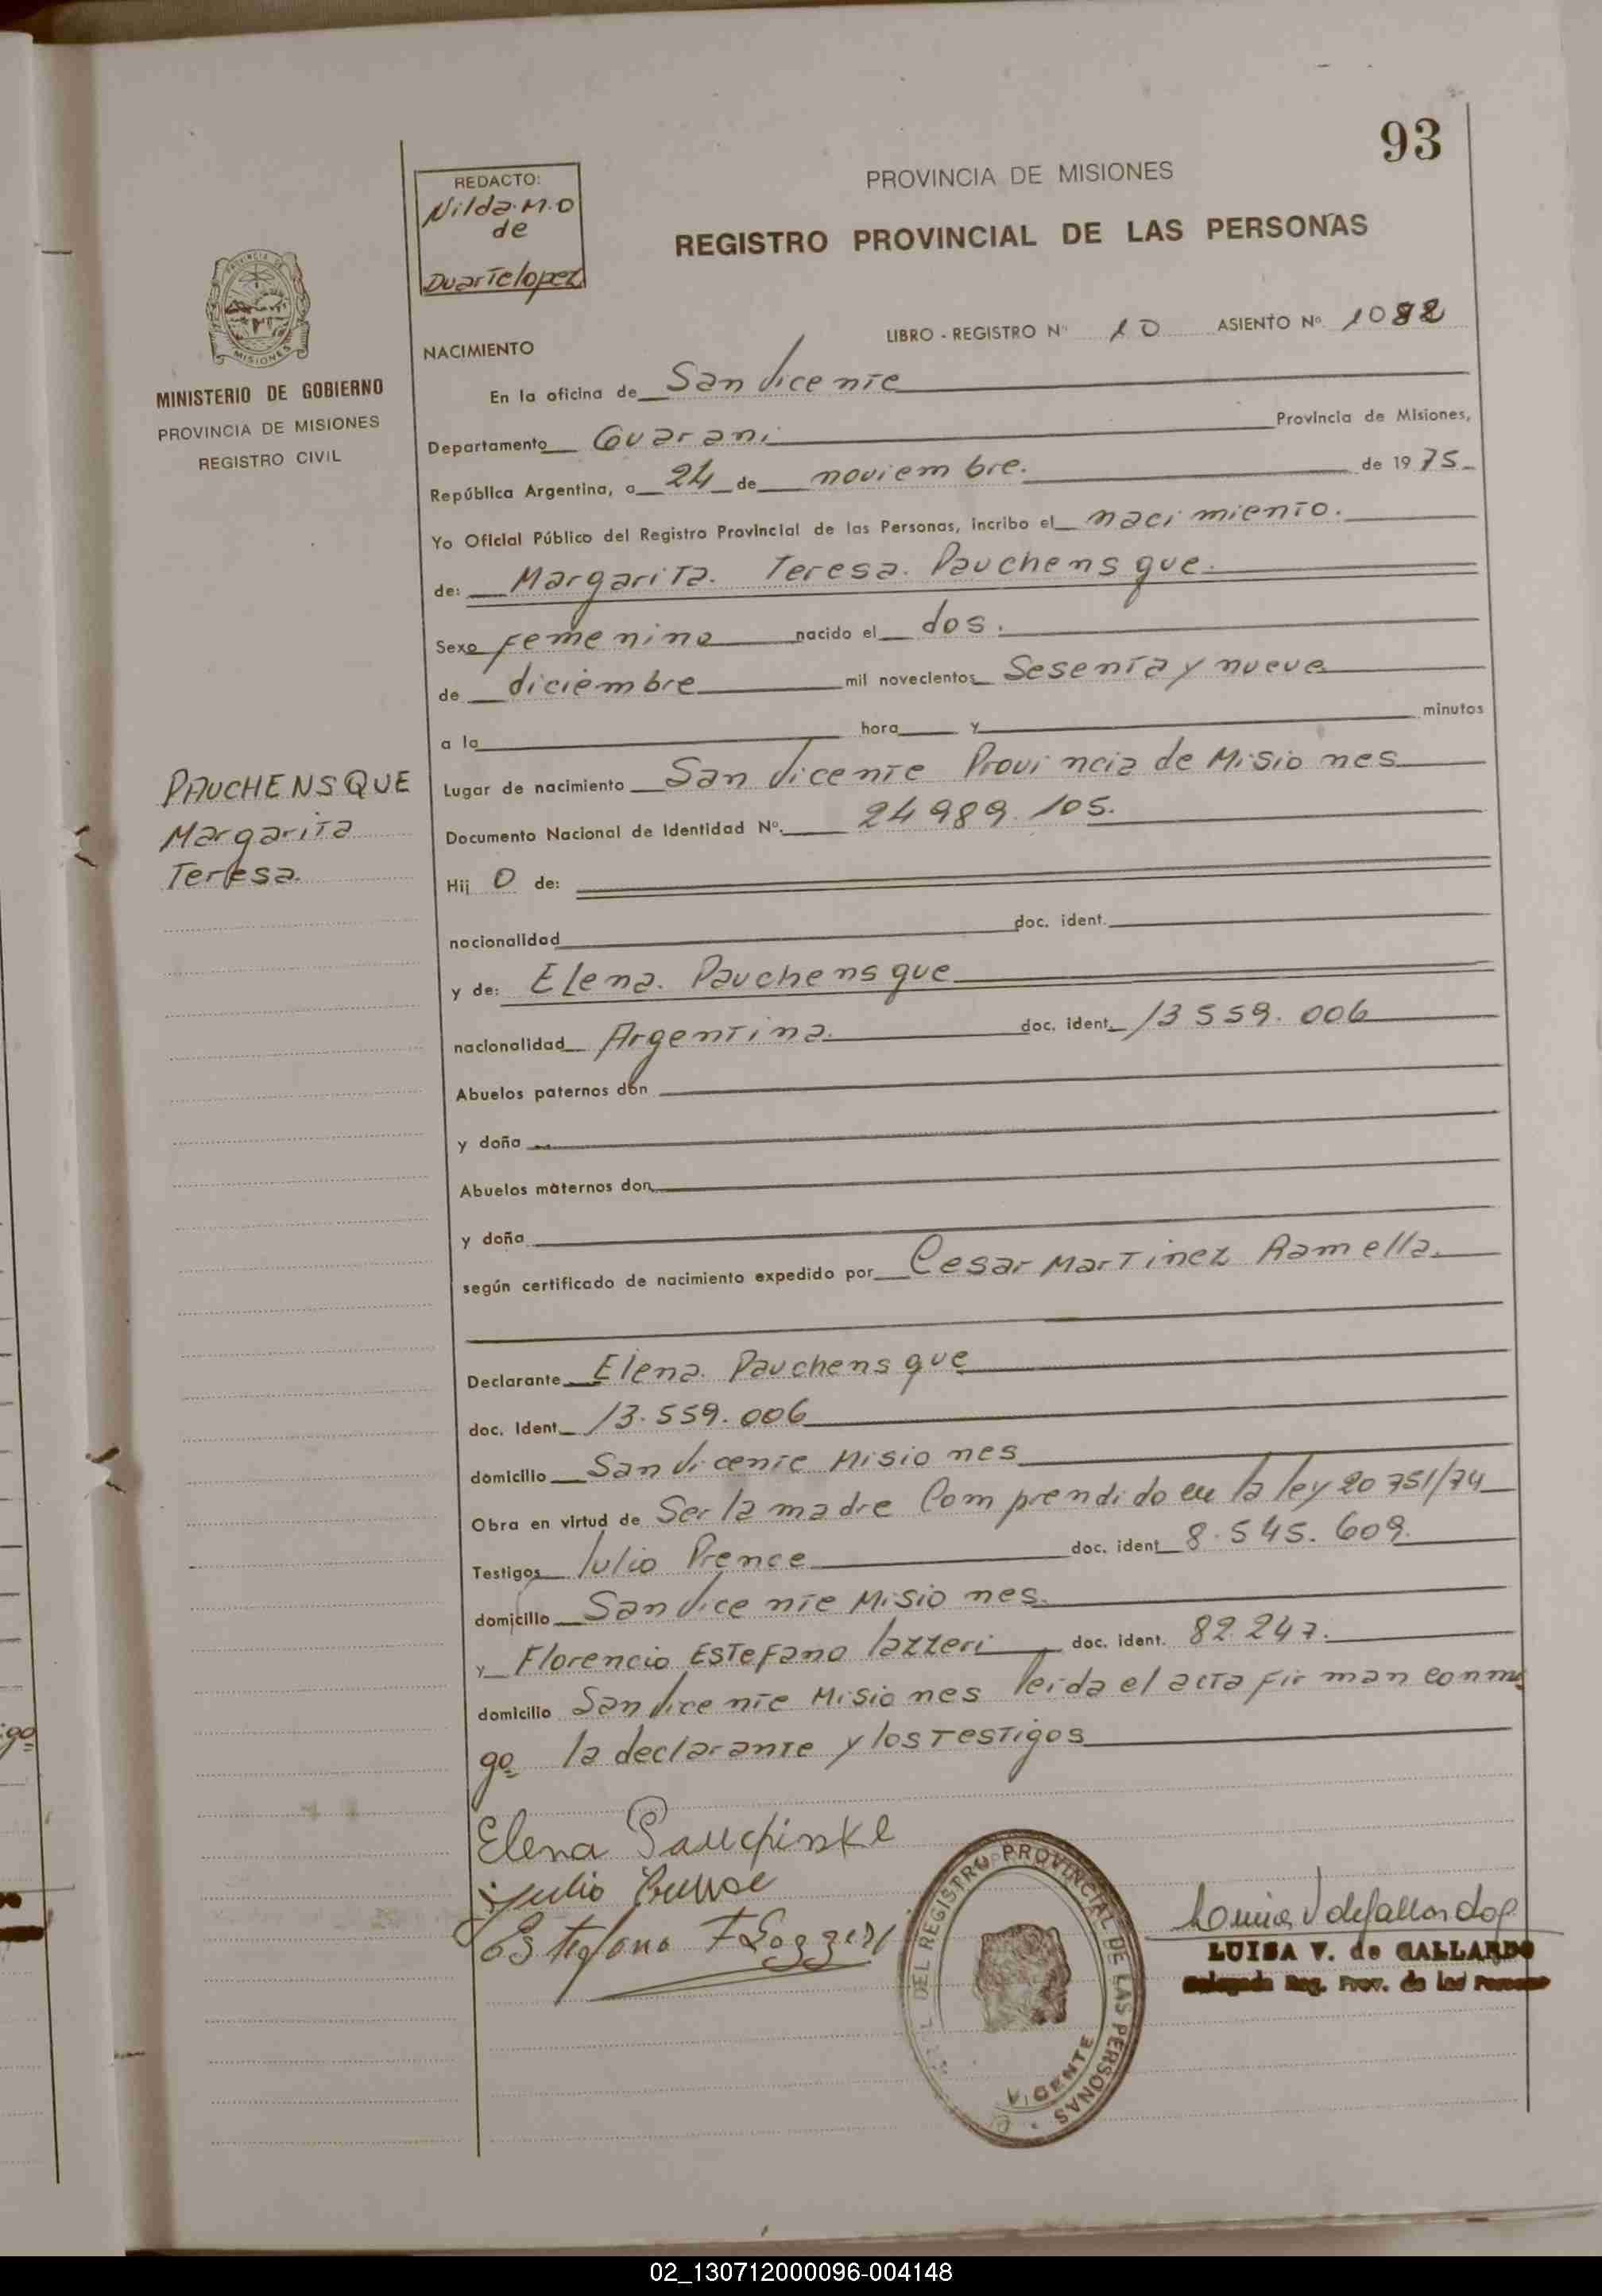 93
REDACTO:
Nilda.M.O
de
Duartelopez
PROVINCIA DE MISIONES
REGISTRO PROVINCIAL DE LAS PERSONAS
PROVINCIA DE
MISIONES
MINISTERIO DE GOBIERNO
PROVINCIA DE MISIONES
REGISTRO CIVIL
LIBRO - REGISTRO Nº 10 ASIENTO Nº 1082
NACIMIENTO
En la oficina de San Vicente
Departamento Guarani Provincia de Misiones,
República Argentina, a 24 de noviembre. de 1975
Yo Oficial Público del Registro Provincial de las Personas, incribo el nacimiento.
de: Margarita. Teresa. Pauchensque.
Sexo femenino nacido el dos.
de diciembre mil novecientos Sesenta y nueve
a la hora y minutos
PAUCHENSQUE
Margarita
Teresa.
Lugar de nacimiento San Vicente Provincia de Misiones
Documento Nacional de Identidad Nº. 24989.105.
Hij O de:
nacionalidad doc. ident.
y de: Elena. Pauchensque
nacionalidad Argentina. doc. ident. 13559.006
Abuelos paternos don
y doña
Abuelos maternos don
y doña
según certificado de nacimiento expedido por Cesar Martinez Ramella.
Declarante Elena. Pauchensque
doc. Ident. 13.559.006
domicilio San Vicente Misiones
Obra en virtud de Ser la madre Comprendido en la ley 20751/74
Testigos Julio Prence doc. ident. 8.545.609.
domicilio San Vicente Misiones.
y Florencio Estefano Iazzeri doc. ident. 82.247.
domicilio San Vicente Misiones leida el acta firman conmi
go la declarante y los testigos
Elena Pauchinske
Julio
Estefano
DEL REGISTRO PROVINCIAL DE LAS PERSONAS
VICENTE
LUISA V. de GALLARDO
Delegada Reg. Prov. de las Personas
igo
02_130712000096-004148